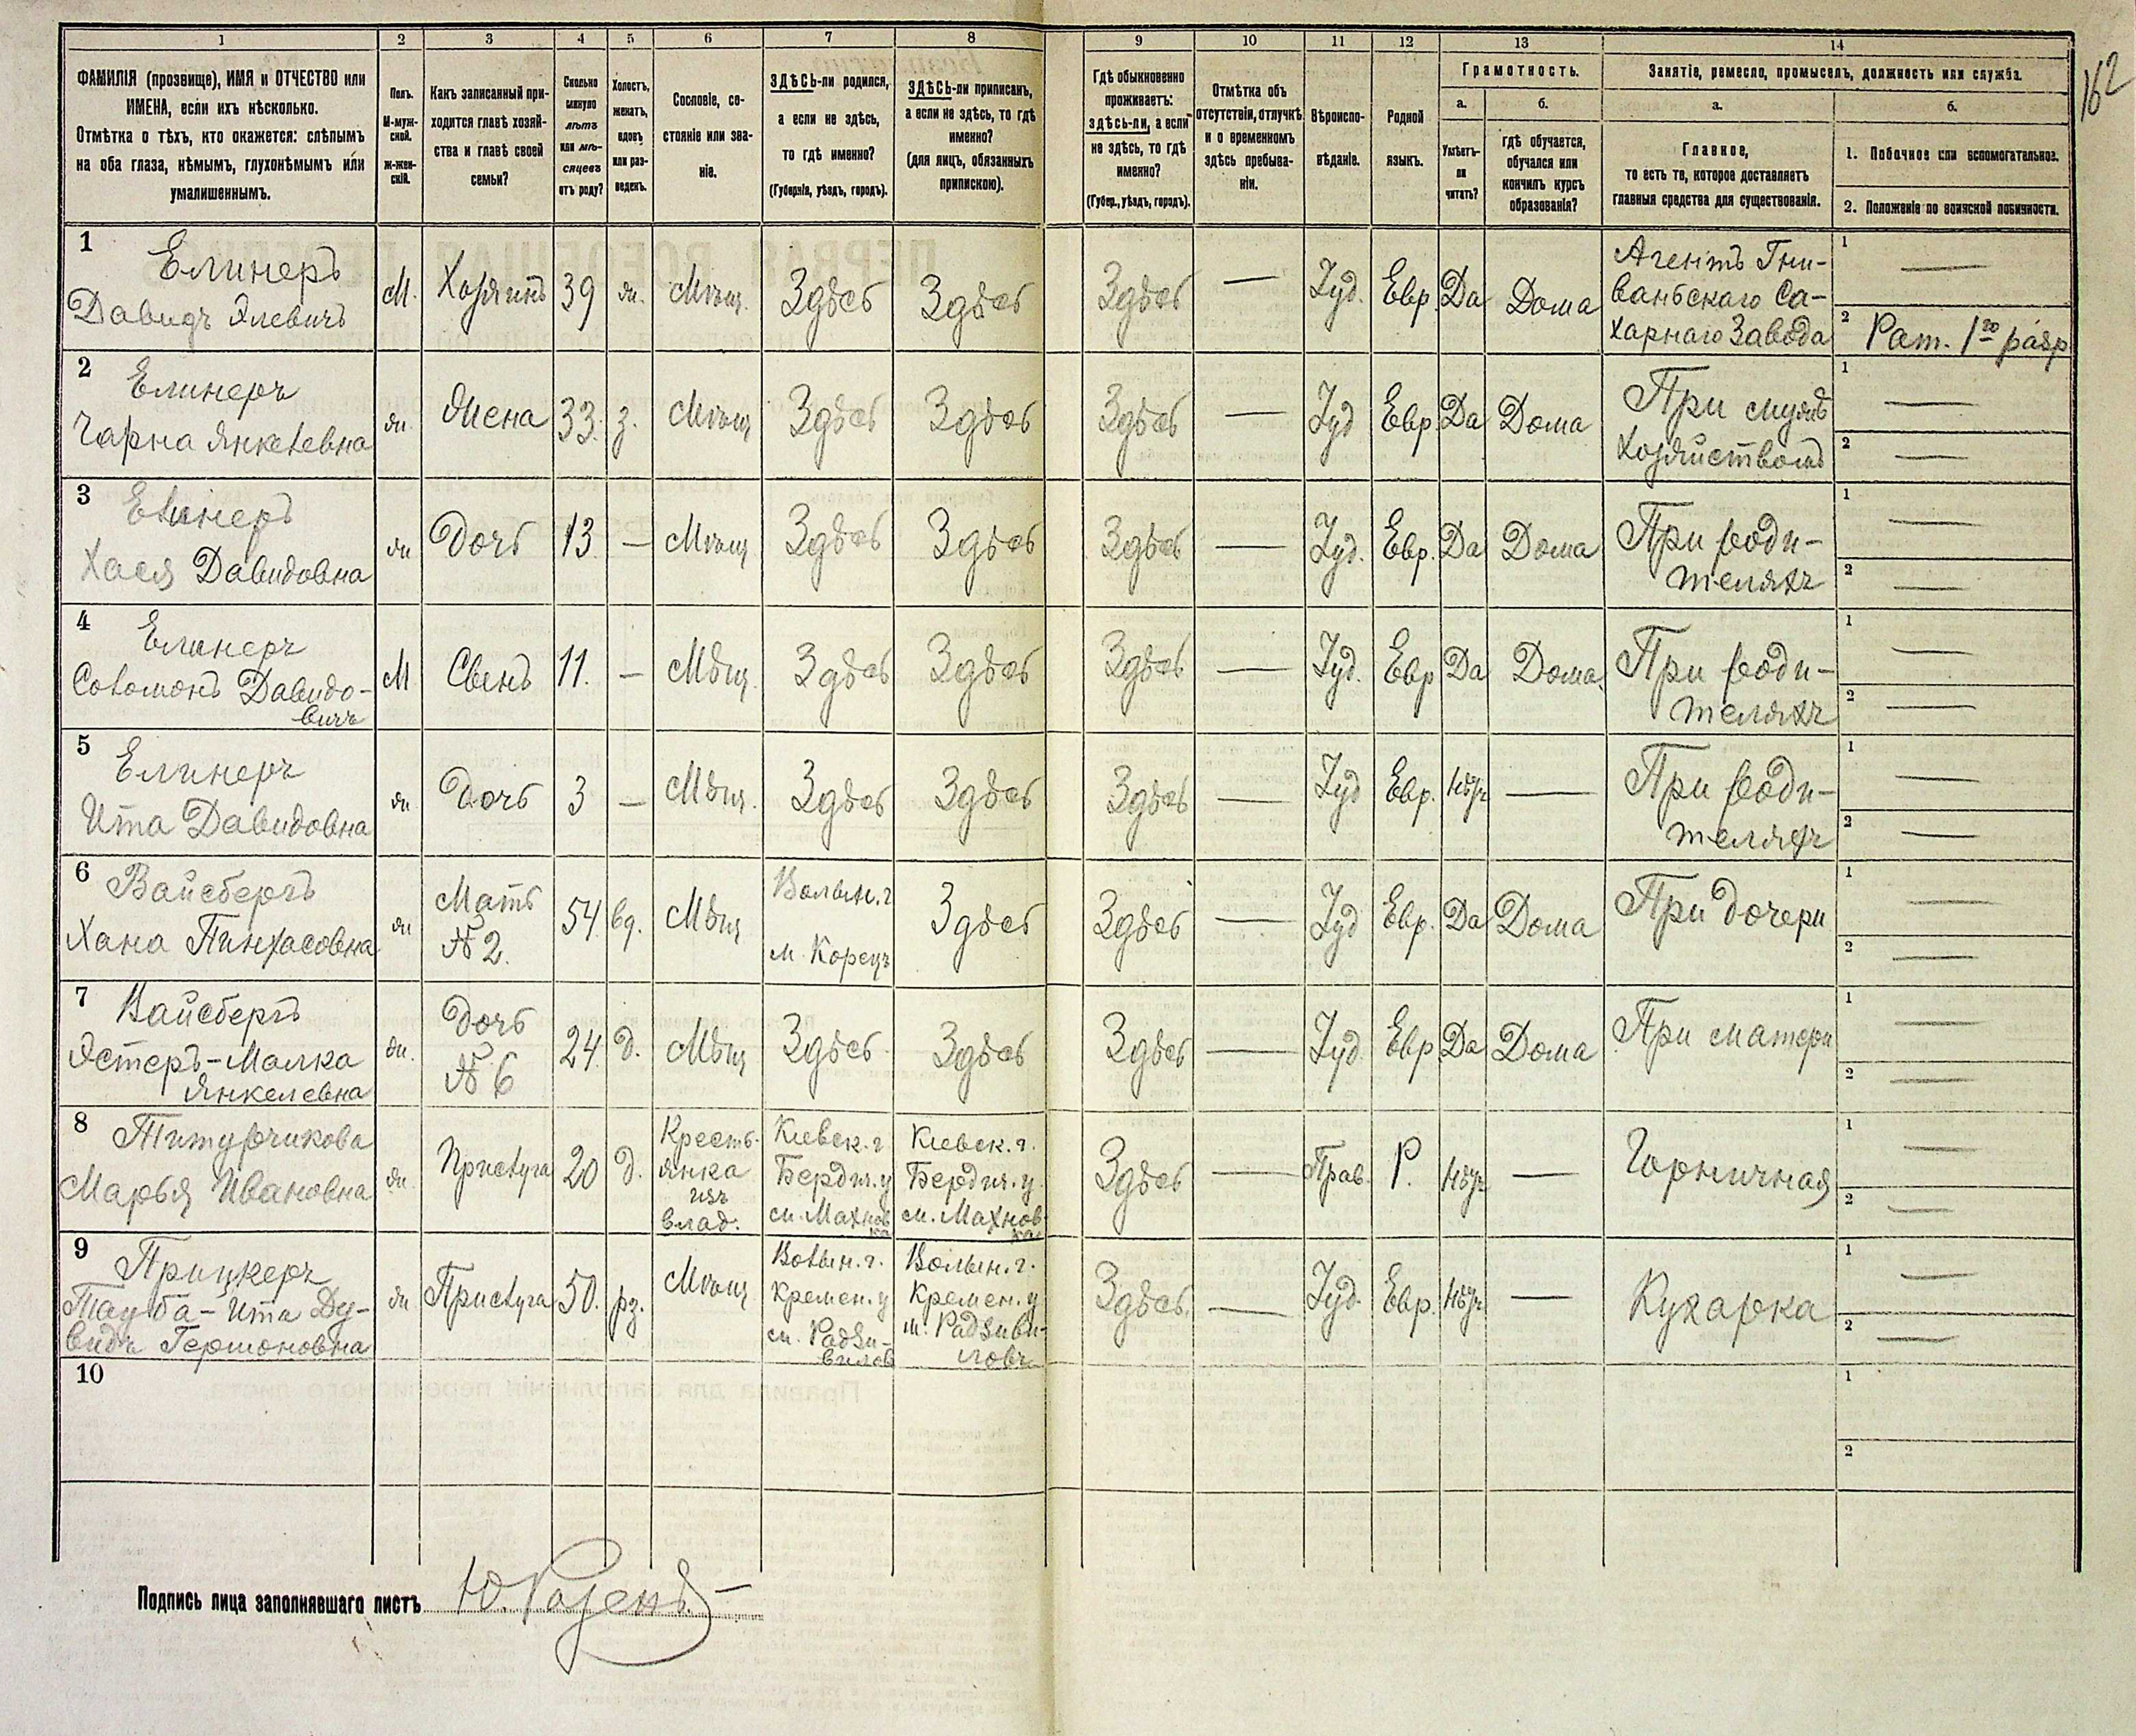 162
1 2 3 4 5 6 7 8 9 10 11 12 13 14
ФАМИЛІЯ (прозвище), ИМЯ и ОТЧЕСТВО или
ИМЕНА, если ихъ нѣсколько.
Отмѣтка о тѣхъ, кто окажется: слѣпымъ
на оба глаза, нѣмымъ, глухонѣмымъ или
умалишеннымъ.
Полъ.
М-муж-
ской.
Ж-жен-
скій.
Какъ записанный при-
ходится главѣ хозяй-
ства и главѣ своей
семьи?
Сколько
минуло
лѣтъ
или мѣ-
сяцевъ
отъ роду?
Холостъ,
женатъ,
вдовъ
или раз-
веденъ.
Сословіе, со-
стояніе или зва-
ніе.
ЗДѢСЬ-ли родился,
а если не здѣсь,
то гдѣ именно?
(Губернія, уѣздъ, городъ).
ЗДѢСЬ-ли приписанъ,
а если не здѣсь, то гдѣ
именно?
(для лицъ, обязанныхъ
припискою).
Гдѣ обыкновенно
проживаетъ:
здѣсь-ли, а если
не здѣсь, то гдѣ
именно?
(Губер., уѣздъ, городъ).
Отмѣтка объ
отсутствіи, отлучкѣ
и о временномъ
здѣсь пребыва-
ніи.
Вѣроиспо-
вѣданіе.
Родной
языкъ.
Грамотность.
а.
Умѣетъ-
ли
читать?
б.
гдѣ обучается,
обучался или
кончилъ курсъ
образованія?
Занятіе, ремесло, промыселъ, должность или служба.
а.
Главное,
то есть то, которое доставляетъ
главныя средства для существованія.
б.
1. Побочное или вспомогательное.
2. Положеніе по воинской повинности.
1 Елинеръ
Давидъ Элевичъ
М. Хозяинъ 39 ж. Мѣщ. Здѣсь Здѣсь Здѣсь — Іуд. Евр. Да Дома
Агентъ Гни-
ваньскаго Са-
харнаго Завода
1 —
2 Рат. 1го разр
2 Елинеръ
Чарна Янкелевна
ж. Жена 33. з. Мѣщ Здѣсь Здѣсь Здѣсь — Іуд Евр. Да Дома
При мужѣ
Хозяйствомъ
1 —
2 —
3 Елинеръ
Хася Давидовна
ж Дочь 13 — Мѣщ Здѣсь Здѣсь Здѣсь — Іуд. Евр. Да Дома
При роди-
теляхъ
1 —
2 —
4 Елинеръ
Соломонъ Давидо-
вичъ
М Сынъ 11. — Мѣщ. Здѣсь Здѣсь Здѣсь — Іуд. Евр Да Дома
При роди-
теляхъ
1 —
2 —
5 Елинеръ
Ита Давидовна
ж Дочь 3 — Мѣщ. Здѣсь Здѣсь Здѣсь — Іуд Евр. Нѣтъ —
При роди-
теляхъ
1 —
2 —
6 Вайсбергъ
Хана Пинхасовна
ж
Мать
№ 2.
54 вд. Мѣщ
Волын. г
м. Корецъ
Здѣсь Здѣсь — Іуд Евр. Да Дома
При дочери
1 —
2 —
7 Вайсбергъ
Эстеръ-Малка
Янкелевна
ж.
Дочь
№ 6
24 д. Мѣщ Здѣсь Здѣсь Здѣсь — Іуд Евр Да Дома
При матери
1 —
2 —
8
Марья Ивановна
ж Прислуга 20 д.
Кресть-
янка
изъ
влад.
Кіевск. г
Бердич. у
м. Махнов
ка
Кіевск. г.
Бердич. у.
м. Махнов-
ка
Здѣсь — Прав. Р. Нѣтъ —
Горничная
1 —
2 —
9 Прицкеръ
Тауба-Ита Ду-
видъ Гершоновна
ж Прислуга 50. рз. Мѣщ
Волын. г.
Кремен. у
м. Радзи-
вилов
Волын. г.
Кремен. у
м. Радзиви-
ловъ
Здѣсь. — Іуд. Евр. Нѣтъ —
Кухарка
1 —
2 —
10
1
2
Подпись лица заполнявшаго листъ Ю. Розенъ